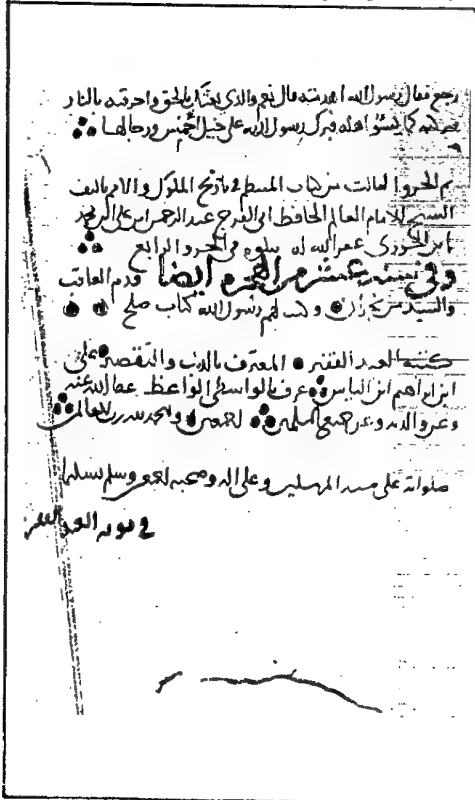 رجع فقال رسول الله اهدمته قال نعم والذي بعثك بالحق واحرقته بالنار
فتركته كما يسوء اهله فبرك رسول الله على خيل أحمس ورجالها
تم الجزو الثالث من كتاب المنتظم في تاريخ الملوك والامم تاليف
الشيخ الامام العالم الحافظ ابي الفرج عبد الرحمن ابن علي
ابن الجوزي غفر الله له يتلوه في الجزو الرابع
وفي سنة عشر من الهجرة ايضا قدم العاقب
والسيد من نجران وكتب لهم رسول الله كتاب صلح
كتبه العبد الفقير المعترف بالذنب والتقصير علي
ابن ابراهيم ابن الياس عرف بالواسطي الواعظ عفا الله عنه
وعن والديه وعن جميع المسلمين اجمعين والحمد لله رب العالمين
صلواته على سيد المرسلين وعلى اله وصحبه اجمعين وسلم تسليما
في نوبه العبد الفقير